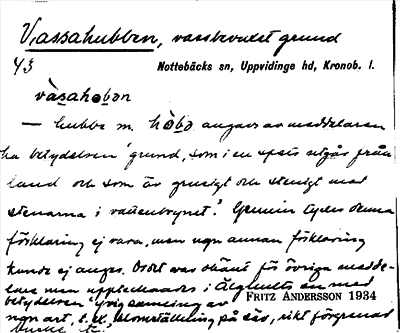 Vassahubben, vassbevuxet grund
43 Nottebäcks sn, Uppvidinge hd, Kronob. l.
vàsahobən
— hubbe m. hòbə angavs av meddelaren
ha betydelsen 'grund, som i en spets utgår från
land och som är grusigt och stenigt med
stenarna i vattenbrynet'. Genuin tycks denna
förklaring ej vara, men ngn annan förklaring
kunde ej anges. Ordet var okänt för övriga medde-
lare men upptecknades i Älghults sn med
betydelsen 'grig samling av FRITZ ANDERSSON 1934
ngn art, t. ex. blomställning på säv, rikt förgrenad
buske